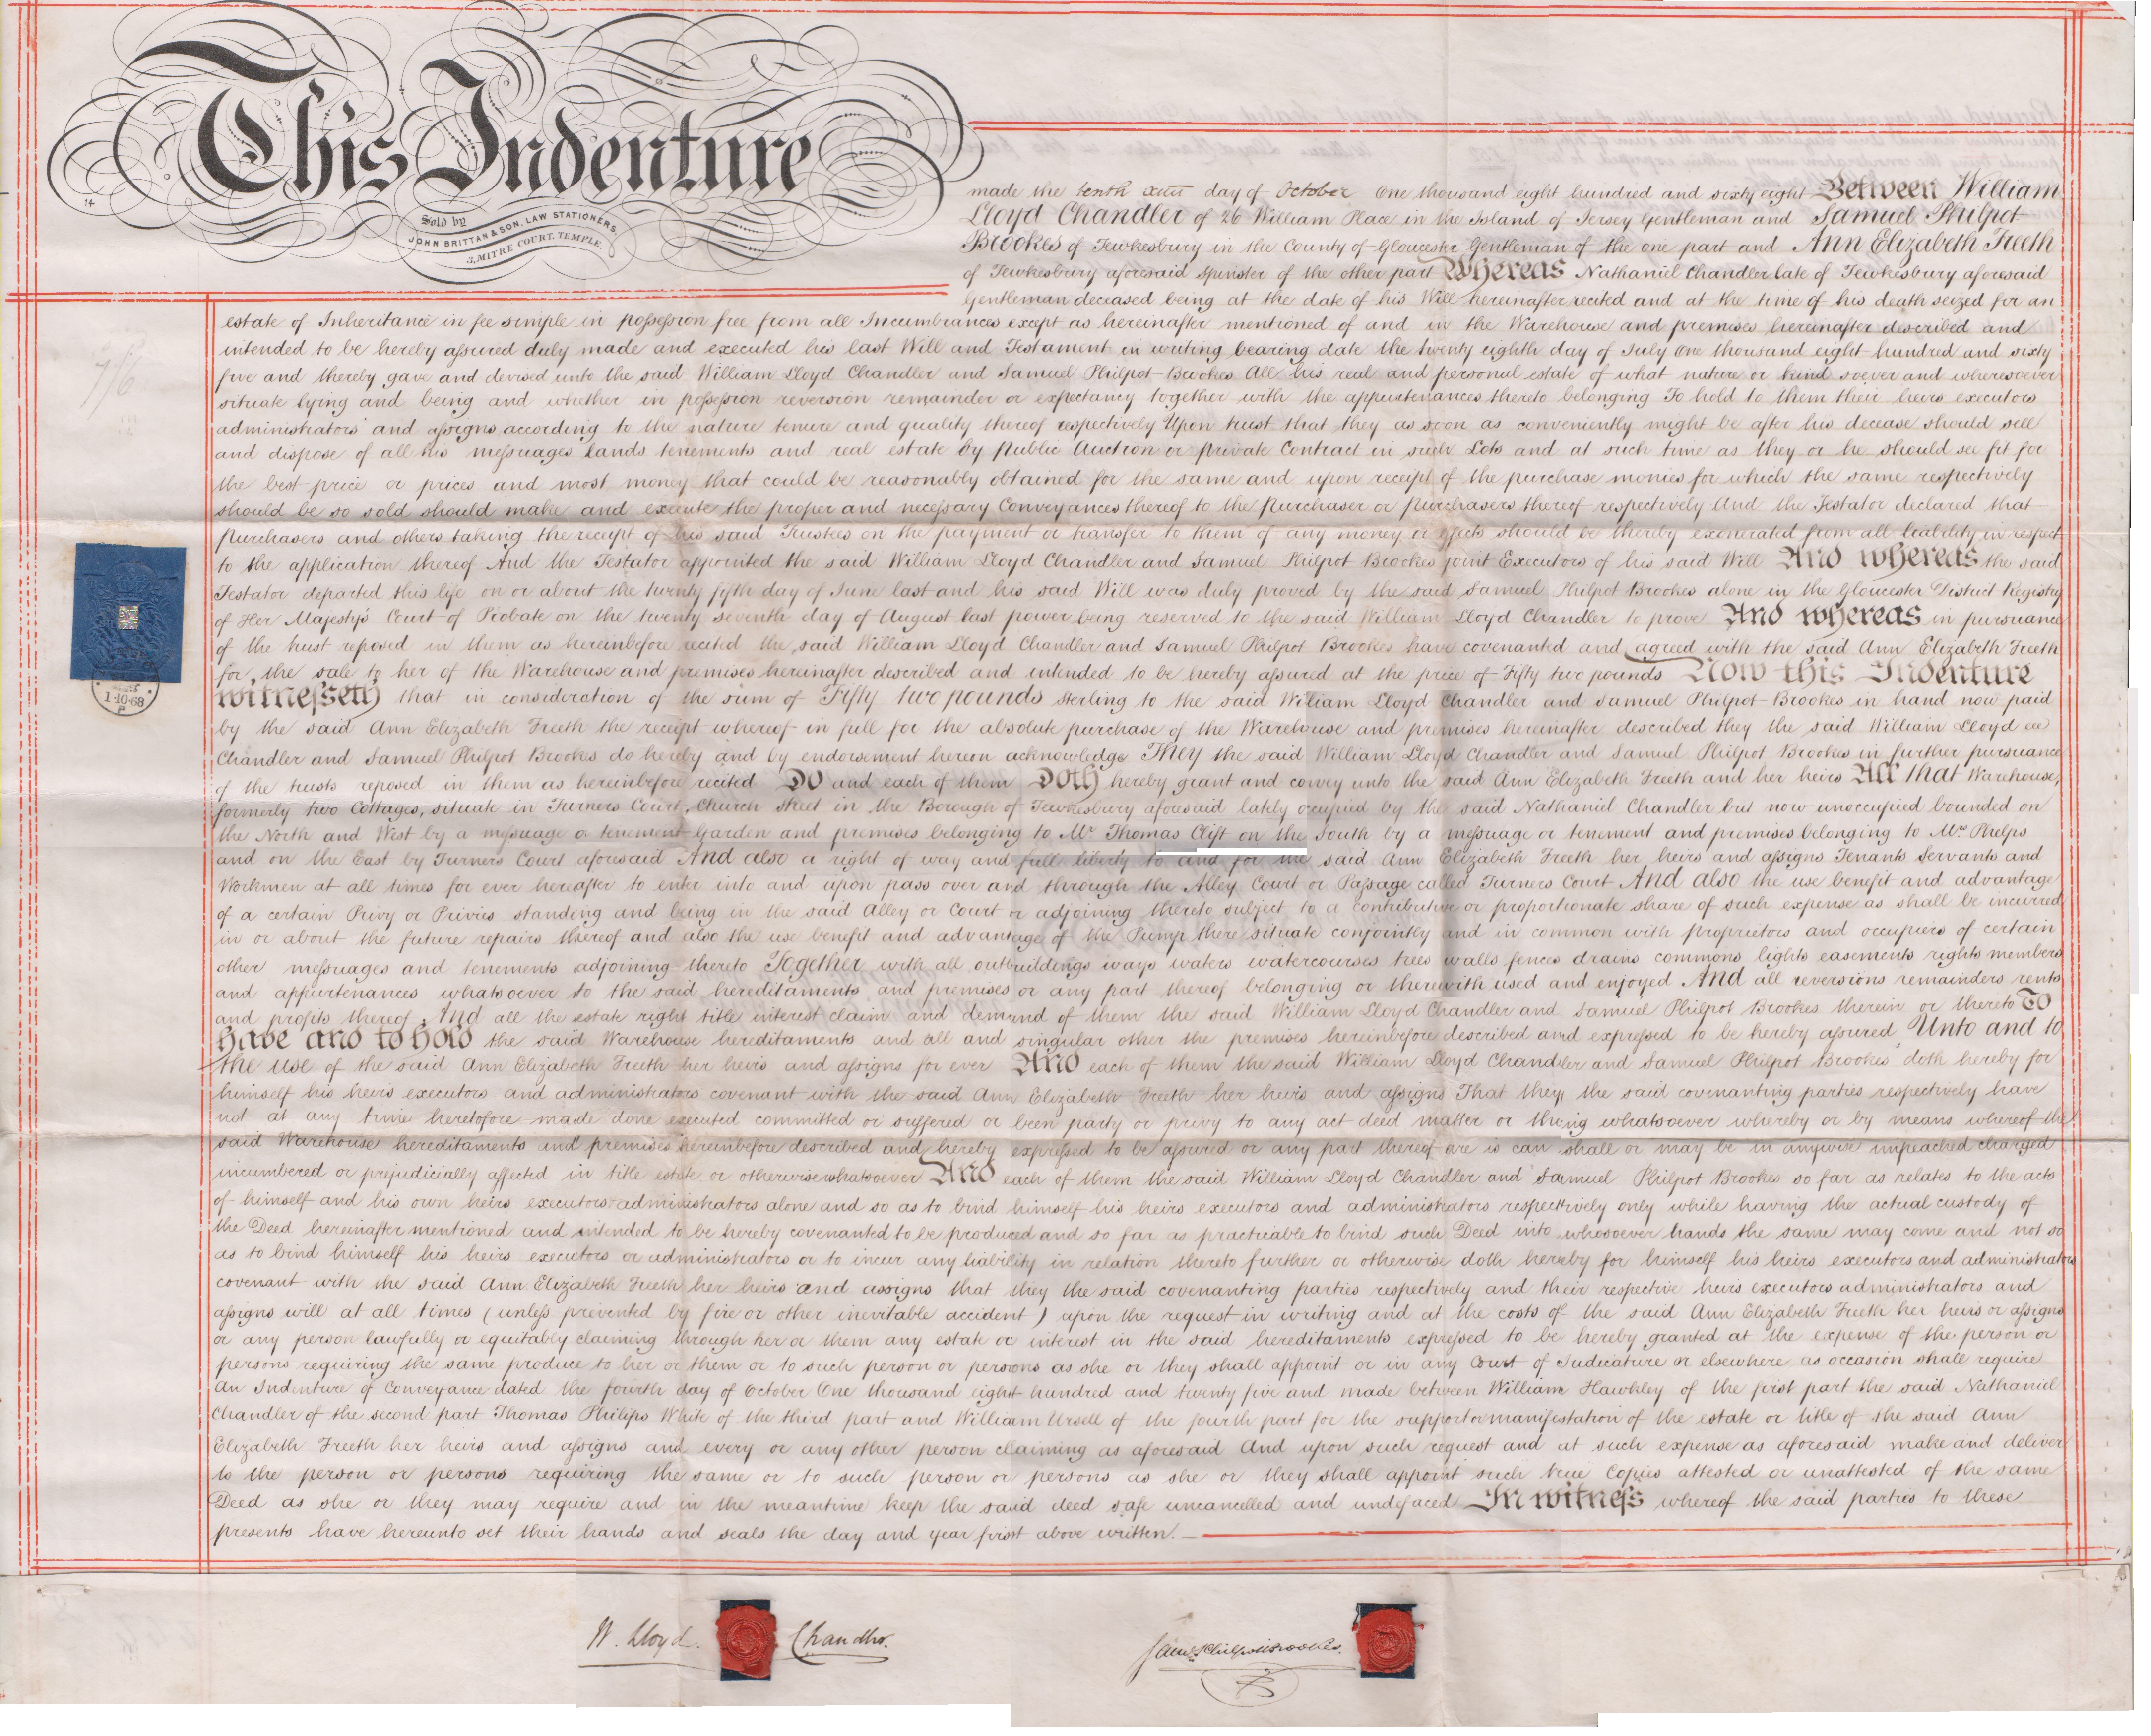 This Indenture
14
Sold by
JOHN BRITTAN & SON, LAW STATIONERS,
3, MITRE COURT, TEMPLE.
made the tenth day of October One thousand eight hundred and sixty eight Between William
Lloyd Chandler of 26 William Place in the Island of Jersey Gentleman and Samuel Philpot
Brookes of Tewkesbury in the County of Gloucester Gentleman of the one part and Ann Elizabeth Freeth
of Tewkesbury aforesaid Spinster of the other part Whereas Nathaniel Chandler late of Tewkesbury aforesaid
Gentleman deceased being at the date of his Will hereinafter recited and at the time of his death seized for an
estate of Inheritance in fee simple in possession free from all Incumbrances except as hereinafter mentioned of and in the Warehouse and premises hereinafter described and
intended to be hereby assured duly made and executed his last Will and Testament in writing bearing date the twenty eighth day of July One thousand eight hundred and sixty
five and thereby gave and devised unto the said William Lloyd Chandler and Samuel Philpot Brookes All his real and personal estate of what nature or kind soever and wheresoever
situate lying and being and whether in possession reversion remainder or expectancy together with the appurtenances thereto belonging To hold to them their heirs executors
administrators and assigns according to the nature tenure and quality thereof respectively Upon trust that they as soon as conveniently might be after his decease should sell
and dispose of all his messuages lands tenements and real estate by Public Auction or private Contract in such Lots and at such time as they or he should see fit for
the best price or prices and most money that could be reasonably obtained for the same and upon receipt of the purchase monies for which the same respectively
should be so sold should make and execute the proper and necessary Conveyances thereof to the Purchaser or Purchasers thereof respectively And the Testator declared that
Purchasers and others taking the receipt of his said Trustees on the payment or transfer to them of any money or effects should be thereby exonerated from all liability in respect
to the application thereof And the Testator appointed the said William Lloyd Chandler and Samuel Philpot Brookes joint Executors of his said Will And whereas the said
Testator departed this life on or about the twenty fifth day of June last and his said Will was duly proved by the said Samuel Philpot Brookes alone in the Gloucester District Registry
of Her Majesty's Court of Probate on the twenty seventh day of August last power being reserved to the said William Lloyd Chandler to prove And whereas in pursuance
of the trust reposed in them as hereinbefore recited the said William Lloyd Chandler and Samuel Philpot Brookes have covenanted and agreed with the said Ann Elizabeth Freeth
for the sale to her of the Warehouse and premises hereinafter described and intended to be hereby assured at the price of Fifty two pounds Now this Indenture
witnesseth that in consideration of the sum of Fifty two pounds sterling to the said William Lloyd Chandler and Samuel Philpot Brookes in hand now paid
by the said Ann Elizabeth Freeth the receipt whereof in full for the absolute purchase of the Warehouse and premises hereinafter described they the said William Lloyd
Chandler and Samuel Philpot Brookes do hereby and by endorsement hereon acknowledge They the said William Lloyd Chandler and Samuel Philpot Brookes in further pursuance
of the trusts reposed in them as hereinbefore recited Do and each of them Doth hereby grant and convey unto the said Ann Elizabeth Freeth and her heirs All that Warehouse,
formerly two Cottages, situate in Turners Court, Church Street in the Borough of Tewkesbury aforesaid lately occupied by the said Nathaniel Chandler but now unoccupied bounded on
the North and West by a messuage or tenement Garden and premises belonging to Mr. Thomas Clift on the South by a messuage or tenement and premises belonging to Mrs Phelps
and on the East by Turners Court aforesaid And also a right of way and full liberty to and for the said Ann Elizabeth Freeth her heirs and assigns Tenants Servants and
Workmen at all times for ever hereafter to enter into and upon pass over and through the Alley Court or Passage called Turners Court And also the use benefit and advantage
of a certain Privy or Privies standing and being in the said Alley or Court or adjoining thereto subject to a contributive or proportionate share of such expense as shall be incurred
in or about the future repairs thereof and also the use benefit and advantage of the Pump there situate conjointly and in common with proprietors and occupiers of certain
other messuages and tenements adjoining thereto Together with all outbuildings ways waters watercourses trees walls fences drains commons lights easements rights members
and appurtenances whatsoever to the said hereditaments and premises or any part thereof belonging or therewith used and enjoyed And all reversions remainders rents
and profits thereof And all the estate right title interest claim and demand of them the said William Lloyd Chandler and Samuel Philpot Brookes therein or thereto To
have and to hold the said Warehouse hereditaments and all and singular other the premises hereinbefore described and expressed to be hereby assured Unto and to
the use of the said Ann Elizabeth Freeth her heirs and assigns for ever And each of them the said William Lloyd Chandler and Samuel Philpot Brookes doth hereby for
himself his heirs executors and administrators covenant with the said Ann Elizabeth Freeth her heirs and assigns That they the said covenanting parties respectively have
not at any time heretofore made done executed committed or suffered or been party or privy to any act deed matter or thing whatsoever whereby or by means whereof the
said Warehouse hereditaments and premises hereinbefore described and hereby expressed to be assured or any part thereof are is can shall or may be in anywise impeached charged
incumbered or prejudicially affected in title estate or otherwise whatsoever And each of them the said William Lloyd Chandler and Samuel Philpot Brookes so far as relates to the acts
of himself and his own heirs executors administrators alone and so as to bind himself his heirs executors and administrators respectively only while having the actual custody of
the Deed hereinafter mentioned and intended to be hereby covenanted to be produced and so far as practicable to bind such Deed into whosoever hands the same may come and not so
as to bind himself his heirs executors or administrators or to incur any liability in relation thereto further or otherwise doth hereby for himself his heirs executors and administrators
covenant with the said Ann Elizabeth Freeth her heirs and assigns that they the said covenanting parties respectively and their respective heirs executors administrators and
assigns will at all times (unless prevented by fire or other inevitable accident) upon the request in writing and at the costs of the said Ann Elizabeth Freeth her heirs or assigns
or any person lawfully or equitably claiming through her or them any estate or interest in the said hereditaments expressed to be hereby granted at the expense of the person or
persons requiring the same produce to her or them or to such person or persons as she or they shall appoint or in any Court of Judicature or elsewhere as occasion shall require
An Indenture of Conveyance dated the fourth day of October One thousand eight hundred and twenty five and made between William Hawkley of the first part the said Nathaniel
Chandler of the second part Thomas Philips White of the third part and William Ursell of the fourth part for the support or manifestation of the estate or title of the said Ann
Elizabeth Freeth her heirs and assigns and every or any other person claiming as aforesaid And upon such request and at such expense as aforesaid make and deliver
to the person or persons requiring the same or to such person or persons as she or they shall appoint such true Copies attested or unattested of the same
Deed as she or they may require and in the meantime keep the said deed safe uncancelled and undefaced In witness whereof the said parties to these
presents have hereunto set their hands and seals the day and year first above written.
1-10-68
W. Lloyd Chandler.
Saml Philpot Brookes.